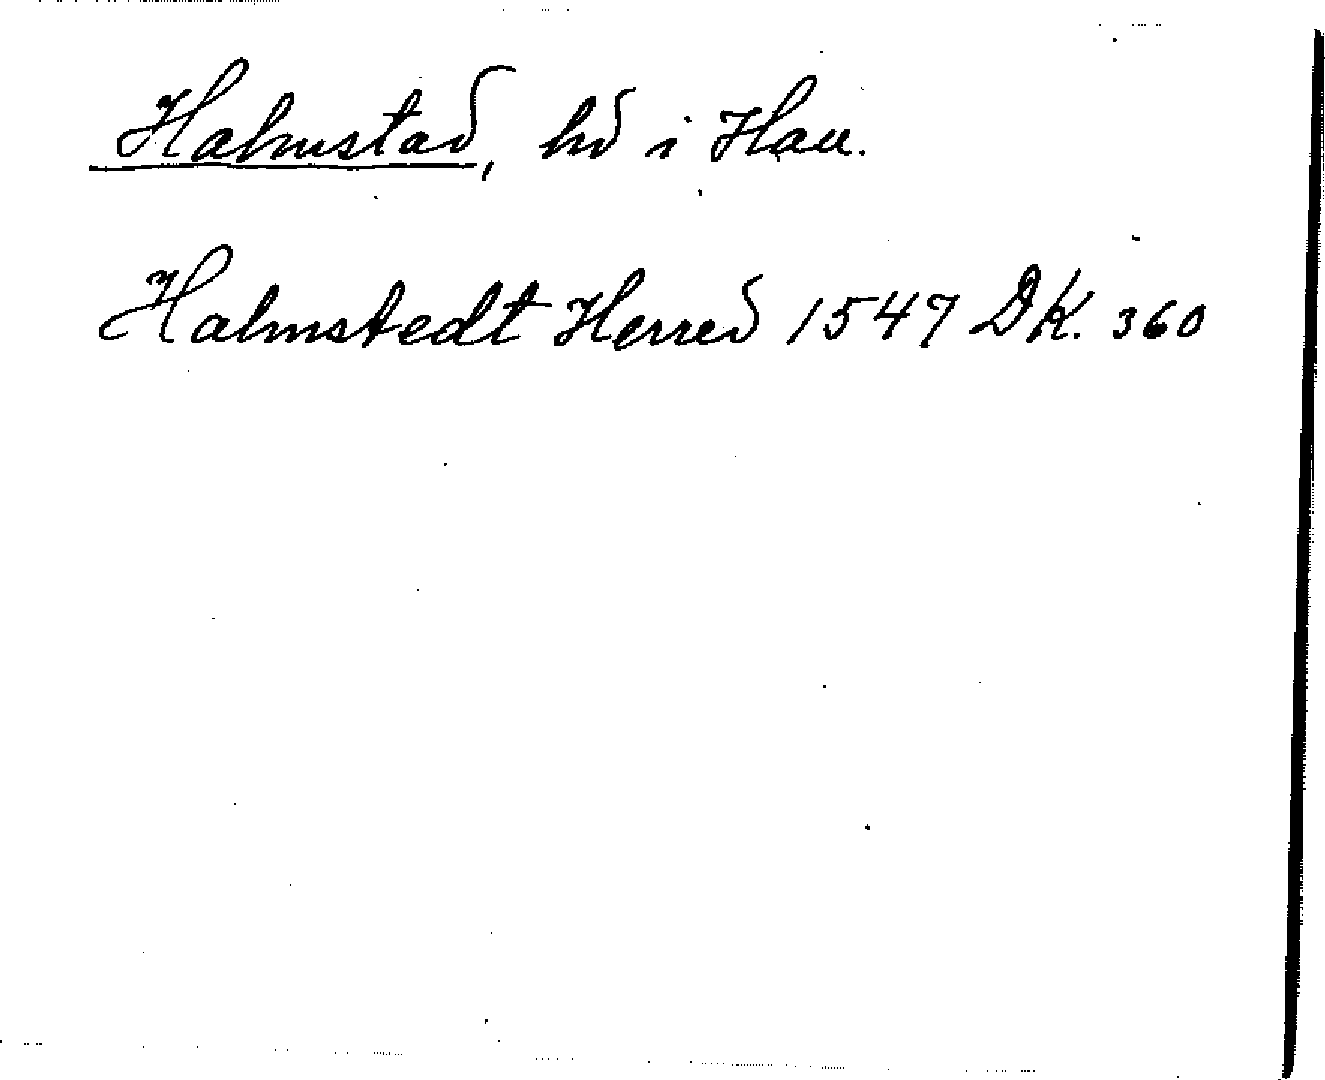 Halmstad, hd i Hall.
Halmstedt Herred 1547 DK. 360